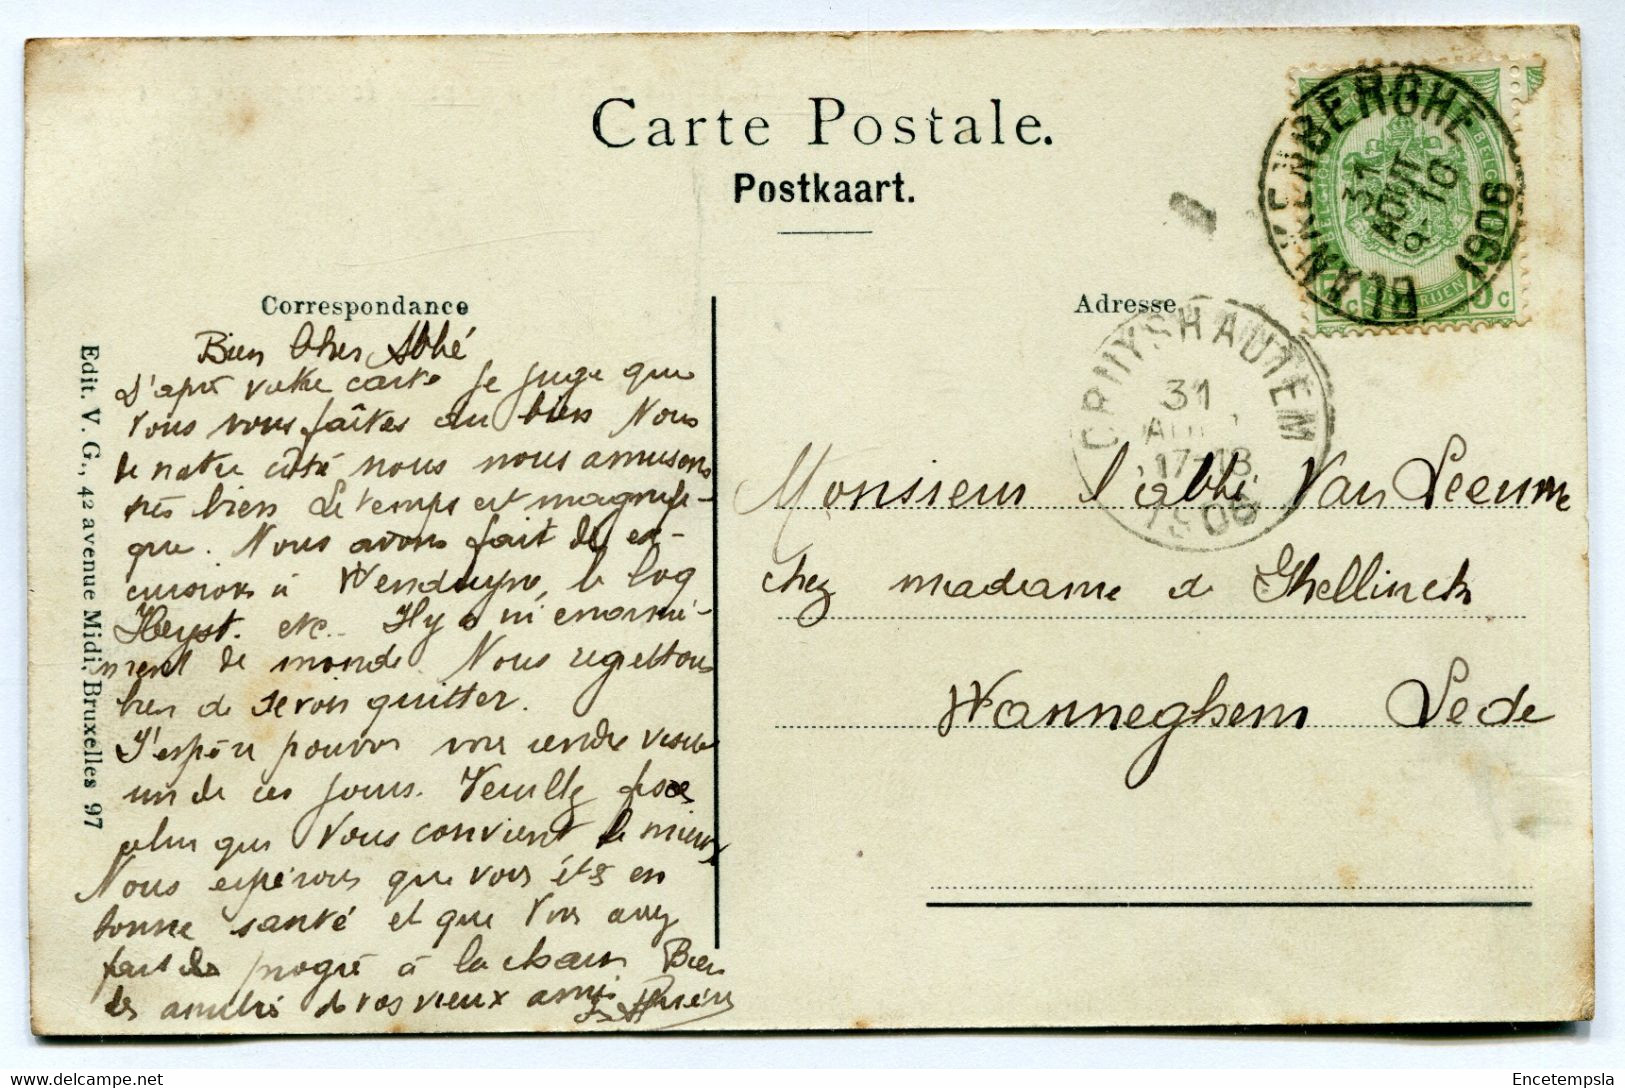 Carte Postale.
Postkaart.
Correspondance
Adresse
Edit. V. G., 42 avenue Midi, Bruxelles 97
BLANKENBERGHE
31
AOUT
9-10
1906
CRUYSHAUTEM
31
AOUT
17-18
1906
Bien cher Abbé
D'après votre carte je juge que
vous vous faîtes au bien Nous
de notre côté nous nous amusons
très bien Le temps est magnifi-
que. Nous avons fait des ex-
cursions à Wenduyne, le Coq
Heyst. etc.. Il y a ni enormé-
ment de monde. Nous regrettons
bien de devoir quitter.
J'espère pouvoir vous rendre visite
un de ces jours. Veuillez fixer
celui que vous convient le mieux
Nous espérons que vous êtes en
bonne santé et que vous avez
fait des progrè à la chasse Bien
des amitiés de vos vieux amis
Monsieur l'abbé Van Leeuwe
chez madame de Ghellinck
Wanneghem Lede
Encetempsla